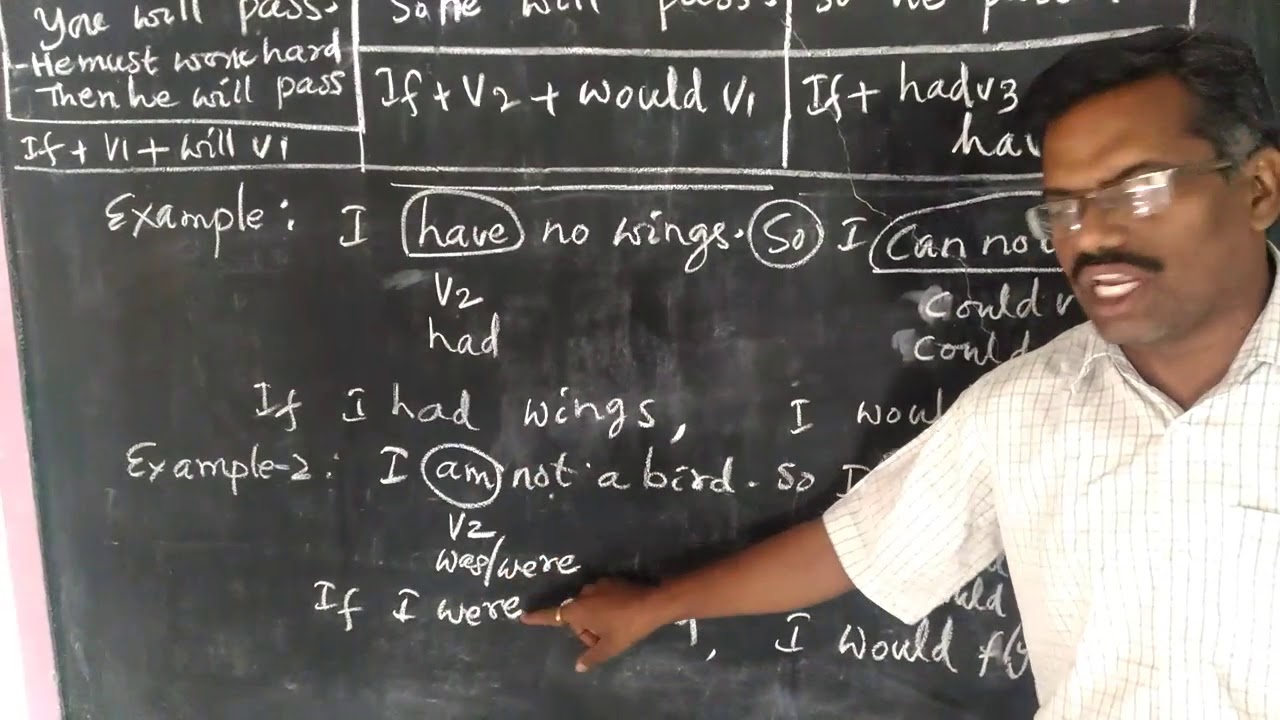 You will pass.
- He must work hard
Then he will pass
If + V1 + will V1
So he will pass.
If + V2 + would V1
so he
If + had V3
Example: I have no wings. So I can not
V2
had
could
could
If I had wings, I
Example-2: I am not a bird. So I
V2
was/were
If I were , I would fly